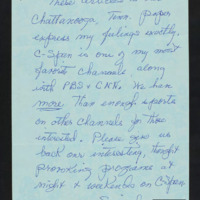 These articles in our
Chattanooga, Tenn. paper
express my feelings exactly.
C-Span is one of my most
favorite channels along
with PBS & CNN. We have
more than enough sports
on other channels for those
interested. Please give us
back our interesting, thought
provoking programs at
night & weekends on C-Span